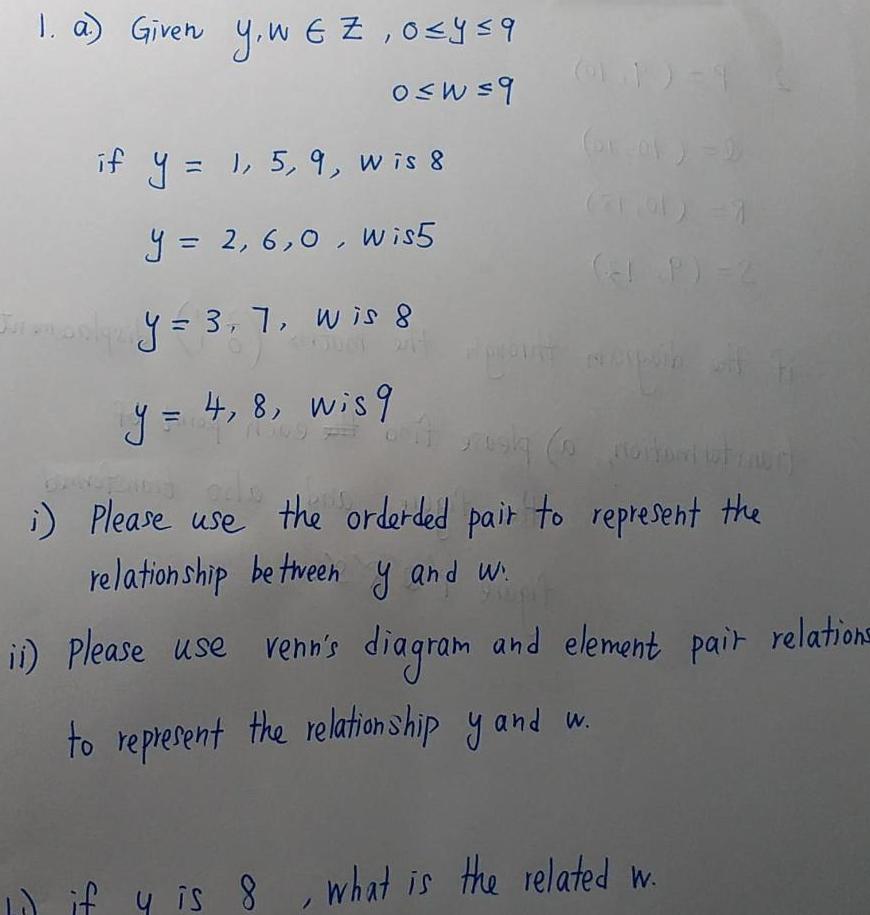 1. a) Given y, w ∈ Z, 0≤y≤9
0≤w≤9
if y = 1, 5, 9, w is 8
y = 2, 6, 0, w is 5
y = 3, 7, w is 8
y = 4, 8, w is 9
i) Please use the orderded pair to represent the
relationship between y and w.
ii) Please use venn's diagram and element pair relations
to represent the relationship y and w.
if y is 8, what is the related w.